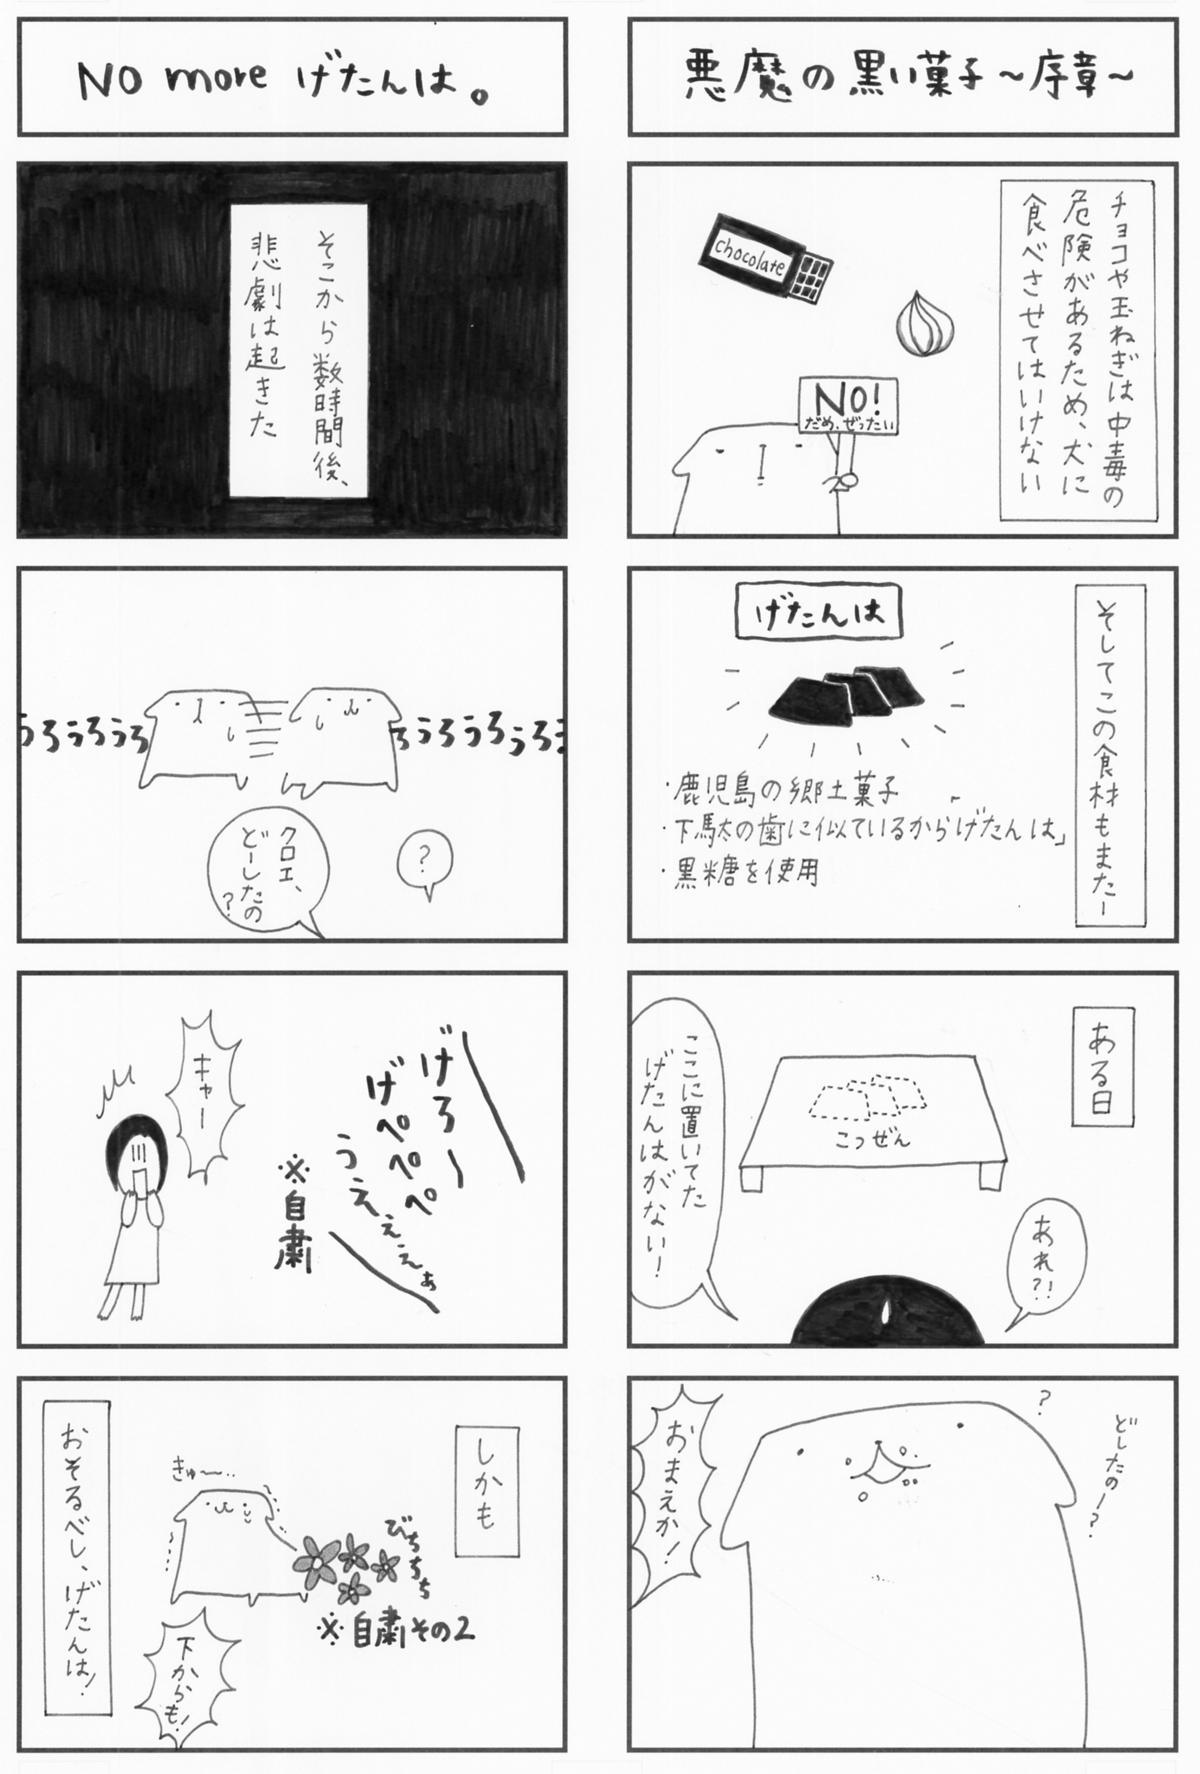 悪魔の黒い菓子～序章～
チョコや玉ねぎは中毒の
危険があるため、犬に
食べさせてはいけない
chocolate
NO!
だめ、ぜったい
そしてこの食材もまたー
げたんは
・鹿児島の郷土菓子
・下駄の歯に似ているから「げたんは」
・黒糖を使用
ある日
こつぜん
ここに置いてた
げたんはがない！
あれ？！
どしたのー？
？
おまえか！
No more げたんは。
そこから数時間後、
悲劇は起きた
うろうろうろ
うろうろうろうろ
？
クロエ、
どーしたの
？
げろー
げぺぺぺ
うえぇぇぁ
※自粛
キャー
しかも
きゅ〜‥
びちちち
※自粛その2
下からも！
おそるべし、げたんは！